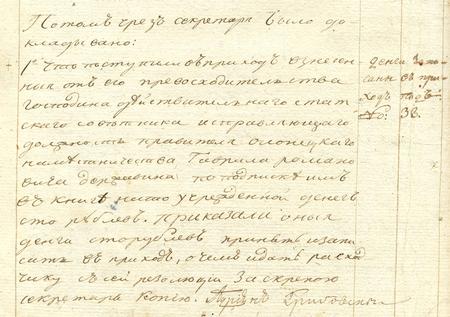 Потомъ чрезъ секретаря было до-
кладывано:
1е Что поступили въ приходъ взнесен-
ныя отъ его превосходительства
господина действительнаго стат-
скаго советника и справляющаго
должность правителя олонецкаго
наместничества Гаврила романо
вича державина по подписке имъ
въ книге на сто учрежденной денегъ
сто рублевъ. приказали оныя
денги сто рублевъ принять и запи
сать въ приходъ, о чемъ и дать расход
чику съ сей резолюции за скрепою
секретаря копию.
денги запи-
саны въ при
ходъ подъ
№: 38.